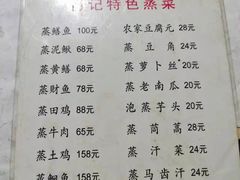 记特色蒸菜
蒸鳝鱼 100元
蒸泥鳅 68元
蒸黄鳝 68元
蒸财鱼 78元
蒸田鸡 88元
蒸牛肉 65元
蒸土鸡 158元
蒸鮰鱼 158元
农家豆腐元 28元
蒸豆角 24元
蒸萝卜丝 20元
蒸老南瓜 20元
泡蒸芋头 20元
蒸茼蒿 28元
蒸汗菜 24元
蒸马齿汗 24元